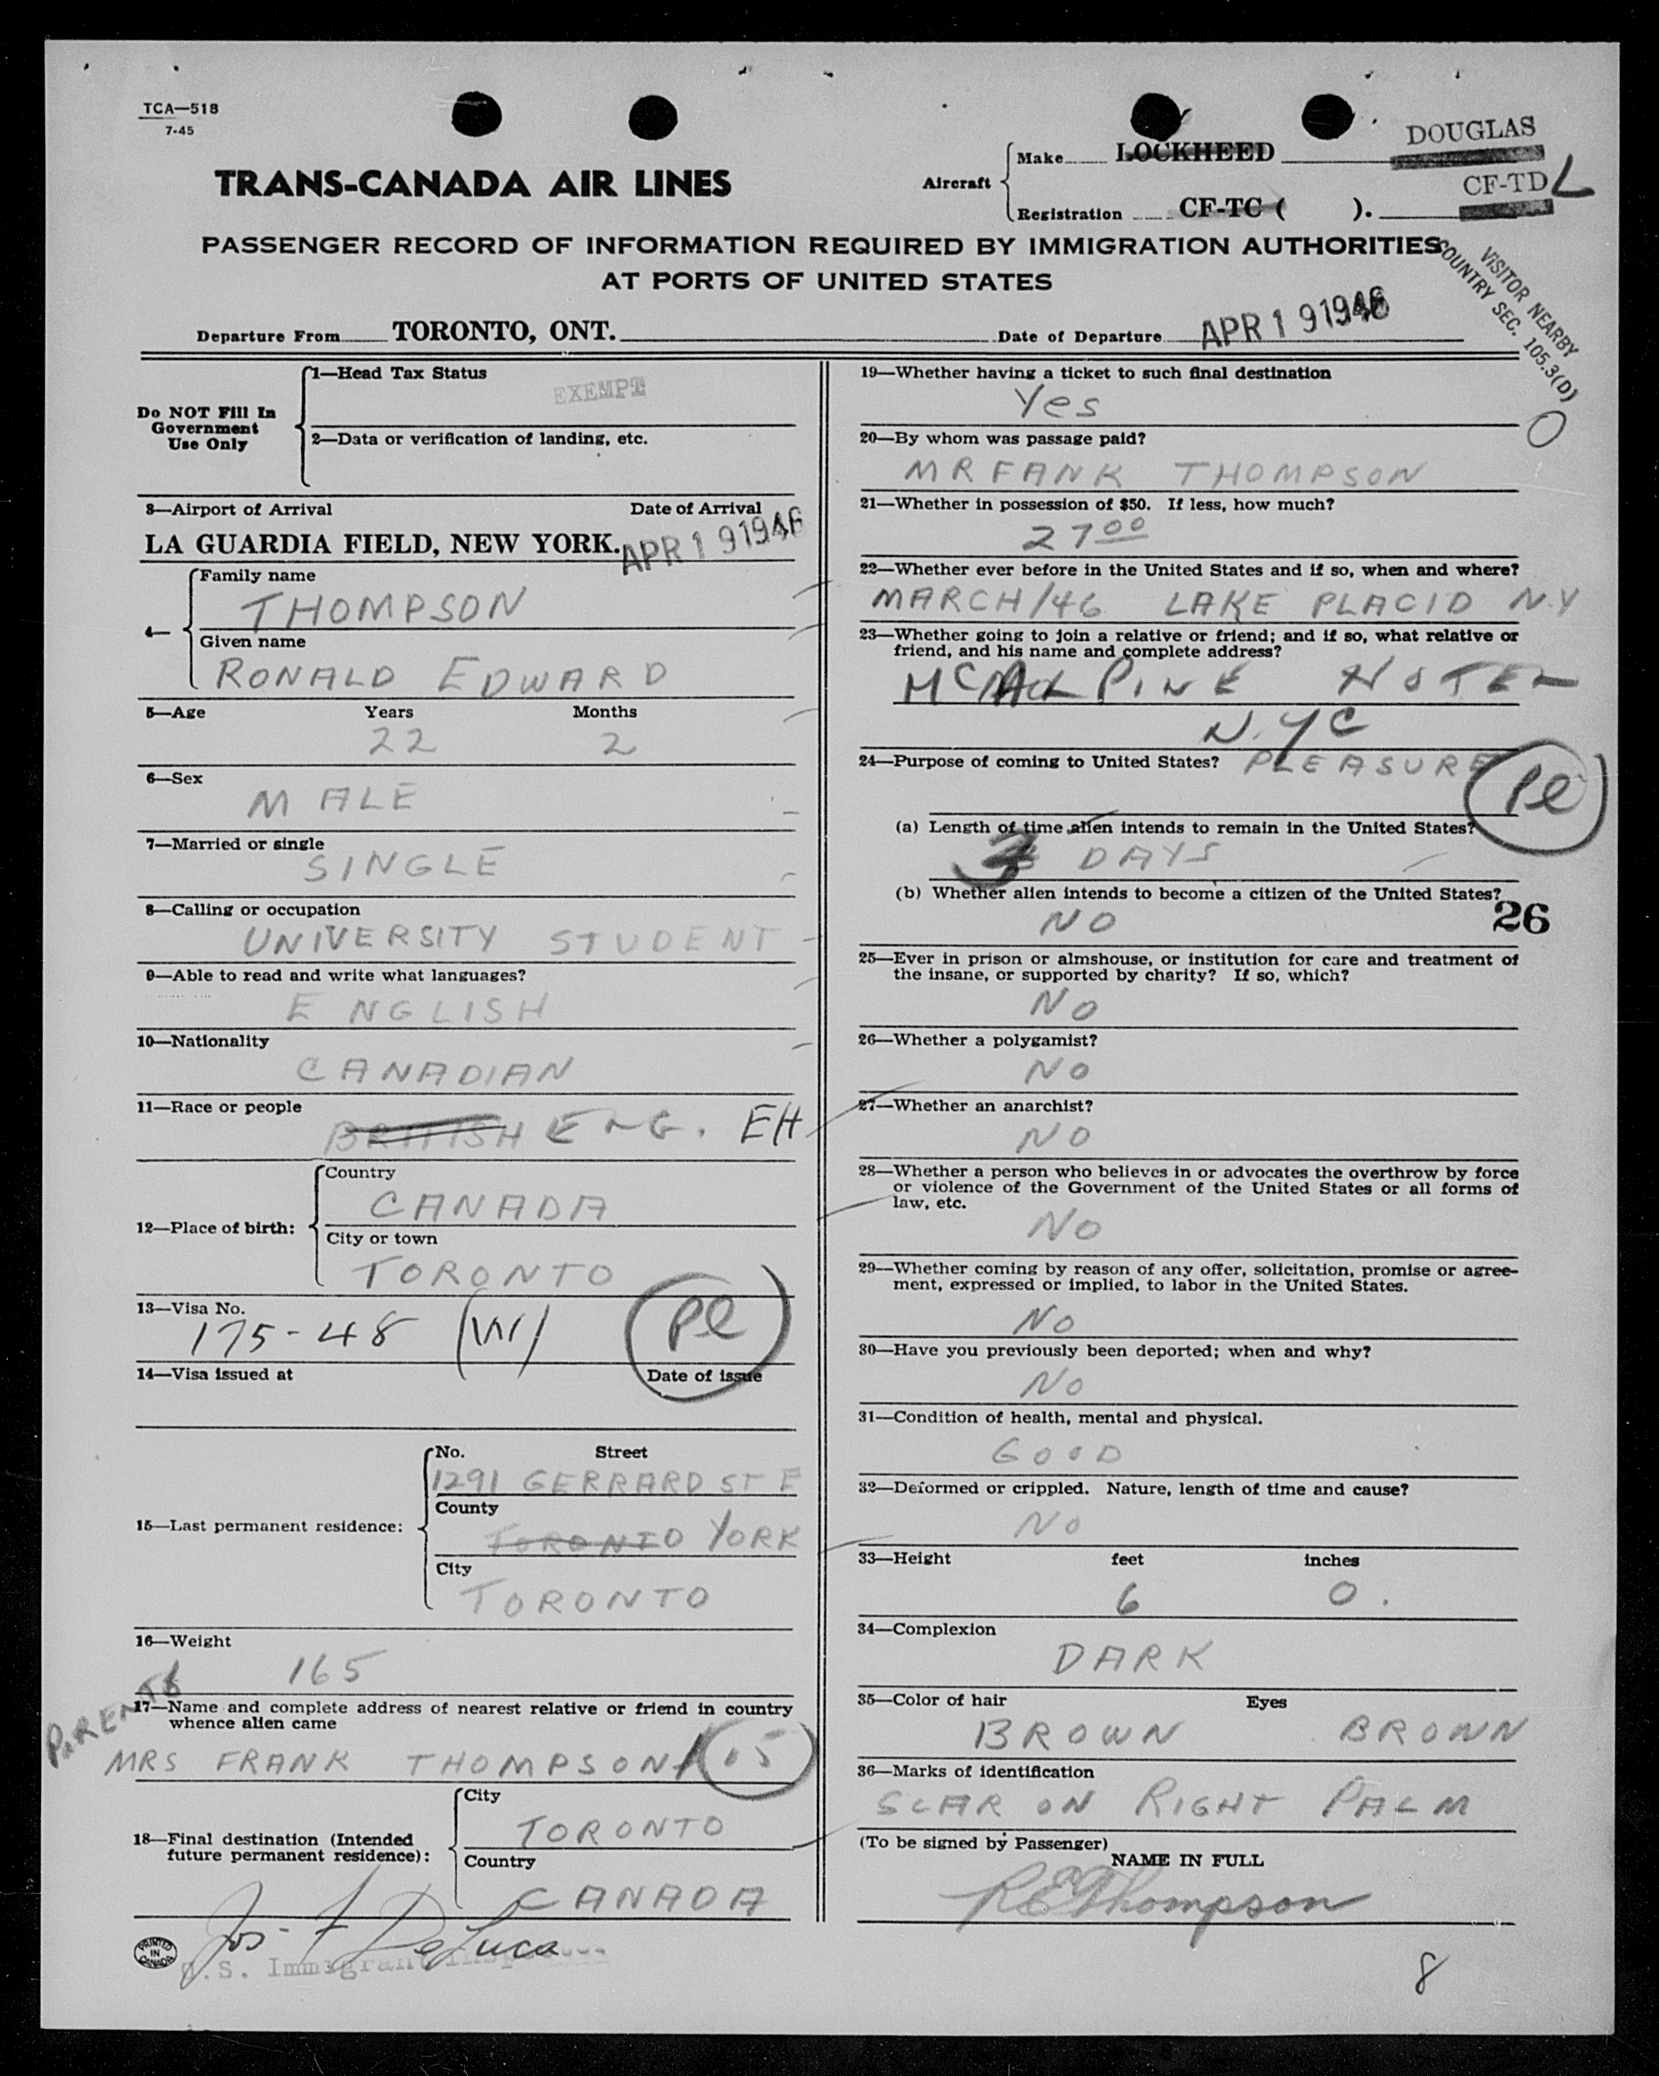 TCA—518
7-45
TRANS-CANADA AIR LINES
Aircraft
Make LOCKHEED
DOUGLAS
Registration CF-TC ( ).
CF-TD L
PASSENGER RECORD OF INFORMATION REQUIRED BY IMMIGRATION AUTHORITIES
AT PORTS OF UNITED STATES
VISITOR NEARBY
COUNTRY SEC. 105.3(D)
Departure From TORONTO, ONT. Date of Departure APR 19 1946
Do NOT Fill In
Government
Use Only
1—Head Tax Status
EXEMPT
2—Data or verification of landing, etc.
3—Airport of Arrival Date of Arrival
LA GUARDIA FIELD, NEW YORK. APR 19 1946
4—
Family name
THOMPSON
Given name
RONALD EDWARD
5—Age Years Months
22 2
6—Sex
MALE
7—Married or single
SINGLE
8—Calling or occupation
UNIVERSITY STUDENT
9—Able to read and write what languages?
ENGLISH
10—Nationality
CANADIAN
11—Race or people
BRITISH ENG. EH
12—Place of birth:
Country
CANADA
City or town
TORONTO
13—Visa No.
175-48 (W) Pl
14—Visa issued at Date of issue
15—Last permanent residence:
No. Street
1291 GERRARD ST E
County
TORONTO YORK
City
TORONTO
16—Weight
165
PARENTS
17—Name and complete address of nearest relative or friend in country
whence alien came
MRS FRANK THOMPSON 05
18—Final destination (Intended
future permanent residence):
City
TORONTO
Country
CANADA
Jos. F DeLuca
U.S. Immigrant Inspector
PRINTED IN CANADA
19—Whether having a ticket to such final destination
Yes
O
20—By whom was passage paid?
MR FANK THOMPSON
21—Whether in possession of $50. If less, how much?
27 00
22—Whether ever before in the United States and if so, when and where?
MARCH/46 LAKE PLACID N.Y
23—Whether going to join a relative or friend; and if so, what relative or
friend, and his name and complete address?
PINE HOTEL
N.Y.C
24—Purpose of coming to United States? PLEASURE
Pl
(a) Length of time alien intends to remain in the United States?
3 DAYS
(b) Whether alien intends to become a citizen of the United States?
NO
26
25—Ever in prison or almshouse, or institution for care and treatment of
the insane, or supported by charity? If so, which?
NO
26—Whether a polygamist?
NO
27—Whether an anarchist?
NO
28—Whether a person who believes in or advocates the overthrow by force
or violence of the Government of the United States or all forms of
law, etc.
NO
29—Whether coming by reason of any offer, solicitation, promise or agree-
ment, expressed or implied, to labor in the United States.
NO
30—Have you previously been deported; when and why?
NO
31—Condition of health, mental and physical.
GOOD
32—Deformed or crippled. Nature, length of time and cause?
NO
33—Height feet inches
6 0.
34—Complexion
DARK
35—Color of hair Eyes
BROWN BROWN
36—Marks of identification
SCAR ON RIGHT PALM
(To be signed by Passenger)
NAME IN FULL
R E Thompson
8